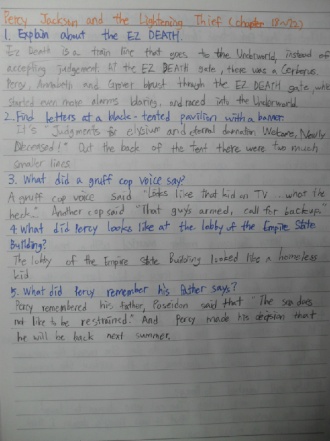 Percy Jackson and the Lightening Thief (chapter 18~22)
1. Explain about the EZ DEATH.
EZ Death is a train line that goes to the Underworld, instead of
accepting judgement. At the EZ DEATH gate, there was a Cerberus.
Percy, Annabeth and Grover burst through the EZ DEATH gate, which
started even more alarms blaring, and raced into the Underworld.
2. Find letters at a black-tented pavilion with a banner.
It's "Judgments for Elysium and eternal damnation, Welcome, Newly
Deceased!" Out the back of the tent there were two much
smaller lines.
3. What did a gruff cop voice say?
A gruff cop voice said "Looks like that kid on TV ... what the
heck." Another cop said "That guy's armed, call for backup."
4. What did Percy looks like at the lobby of the Empire State
Building?
The lobby of the Empire State Building looked like a homeless
kid.
5. What did Percy remember his father says?
Percy remembered his father, Poseidon said that "The sea does
not like to be restrained." And Percy made his decision that
he will be back next summer.